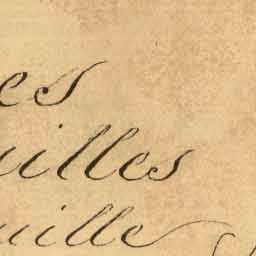 es
uilles
uille